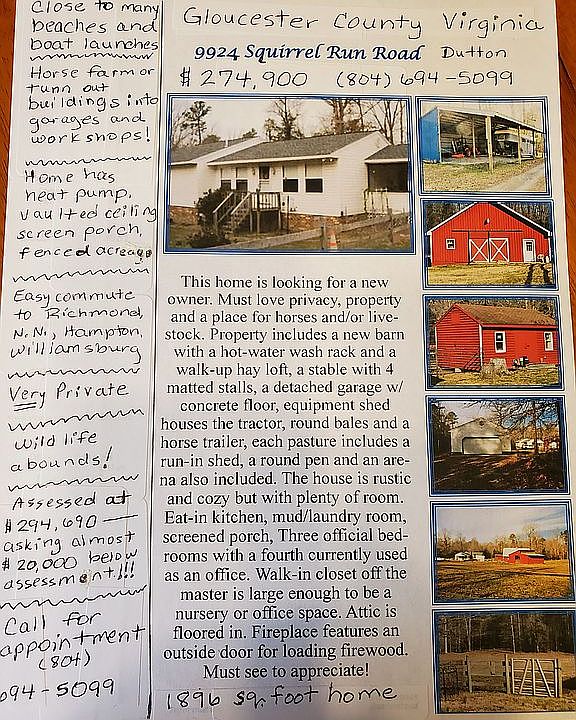 Close to many
beaches and
boat launches
Horse farm or
turn out
buildings into
garages and
workshops!
Home has
heat pump,
vaulted ceiling
screen porch,
fenced acreage
Easy commute
to Richmond,
N.N., Hampton,
Williamsburg
Very Private
Wild life
abounds!
Assessed at
$294,690 —
asking almost
$20,000 below
assessment!!!
Call for
appointment
(804)
694-5099
Gloucester County Virginia
9924 Squirrel Run Road Dutton
$274,900 (804) 694-5099
This home is looking for a new
owner. Must love privacy, property
and a place for horses and/or live-
stock. Property includes a new barn
with a hot-water wash rack and a
walk-up hay loft, a stable with 4
matted stalls, a detached garage w/
concrete floor, equipment shed
houses the tractor, round bales and a
horse trailer, each pasture includes a
run-in shed, a round pen and an are-
na also included. The house is rustic
and cozy but with plenty of room.
Eat-in kitchen, mud/laundry room,
screened porch, Three official bed-
rooms with a fourth currently used
as an office. Walk-in closet off the
master is large enough to be a
nursery or office space. Attic is
floored in. Fireplace features an
outside door for loading firewood.
Must see to appreciate!
1896 sq. foot home